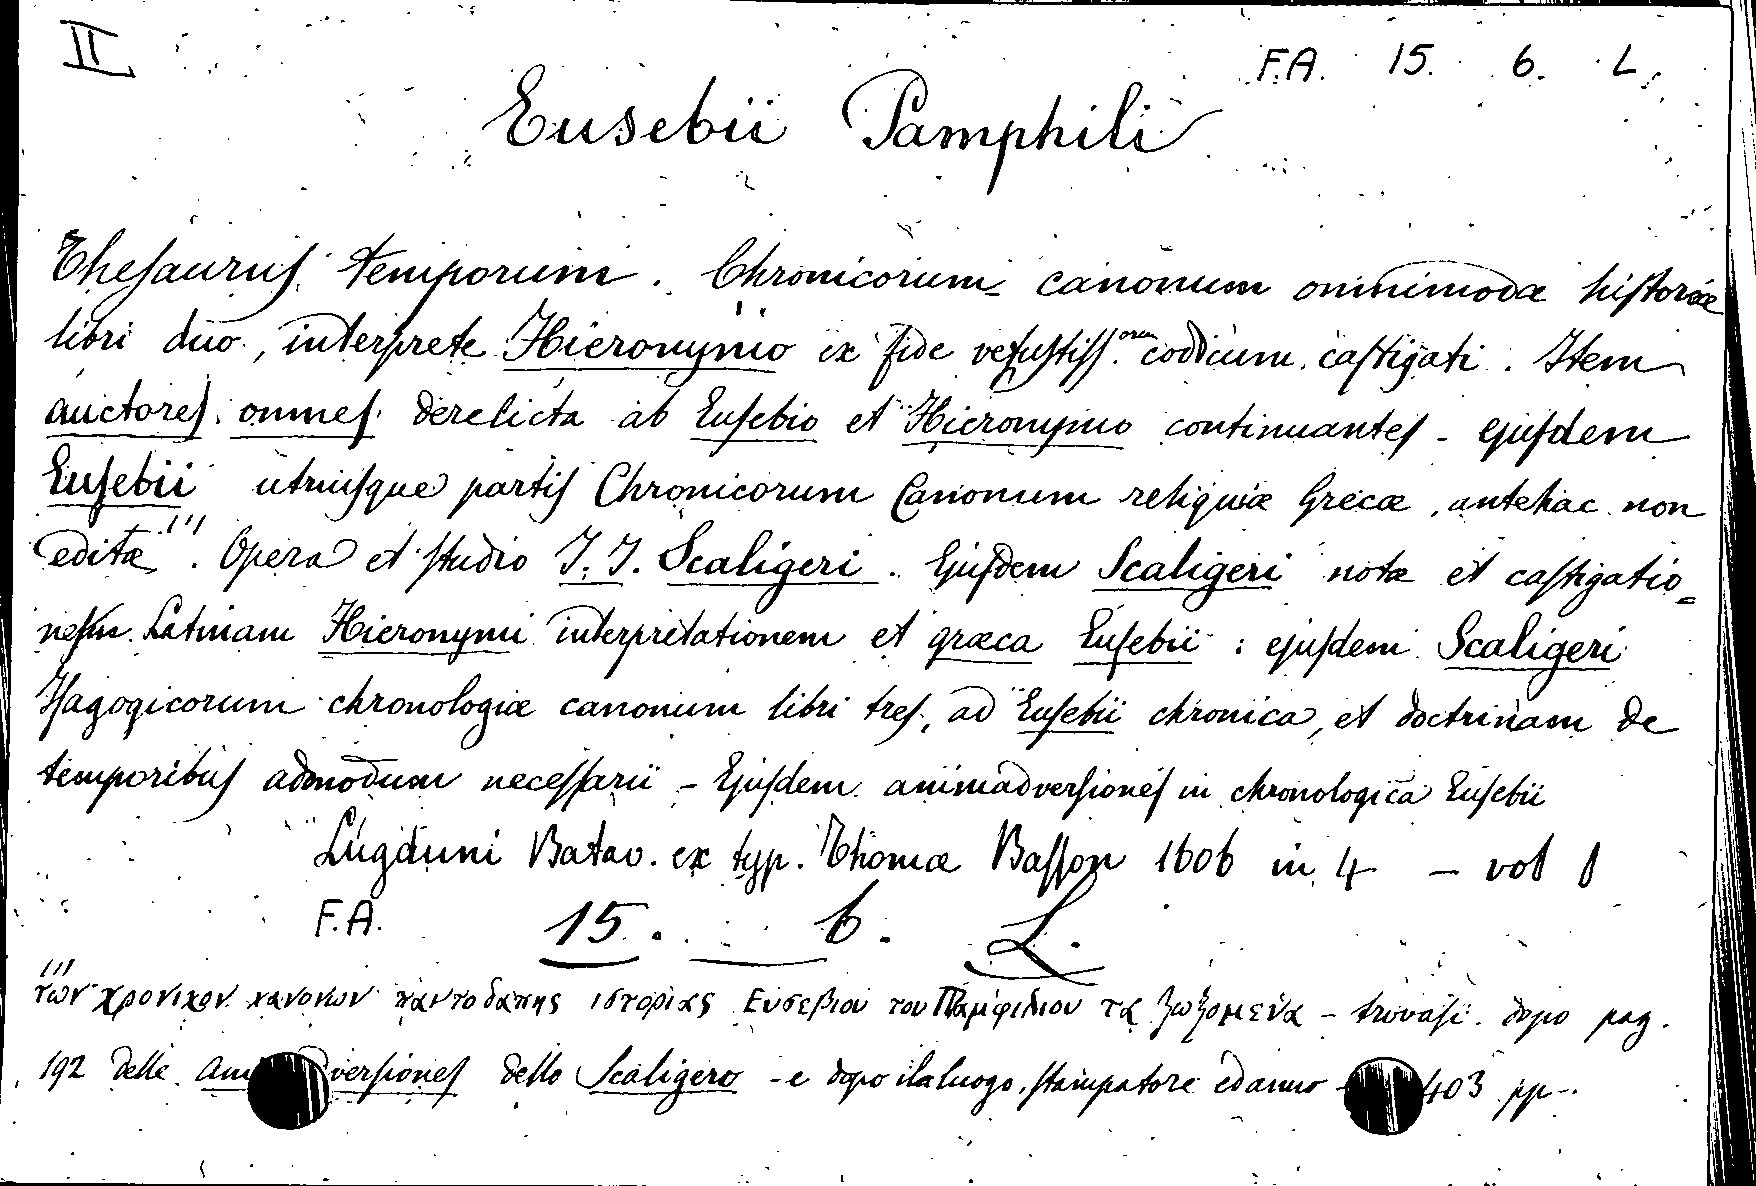 II
F.A. 15. 6. L.
Eusebii Pamphili
Thesaurus temporum. Chronicorum canonum omnimodæ historiæ
libri duo, interprete Hieronymo ex fide vetustiss.orum codicum castigati. Item
auctores omnes derelicta ab Eusebio et Hieronymo continuantes - ejusdem
Eusebii utriusque partis Chronicorum Canonum reliquiæ Grecæ, antehac non
editæ (1). Opera et studio J. J. Scaligeri. Ejusdem Scaligeri notæ et castigatio=
nes in Latinam Hieronymi interpretationem et græca Eusebii : ejusdem Scaligeri
Isagogicorum chronologiæ canonum libri tres, ad Eusebii chronica, et doctrinam de
temporibus admodum necessarii - Ejusdem animadversiones in chronologica Eusebii
Lugduni Batav. ex typ. Thomæ Basson 1606 in 4 - vol 1
F.A. 15. 6. L.
(1) των χρονικον κανονων παντοδαπης ιστοριας Ευσεβιου του Παμφιλιου τα ζωζομενα - trovasi dopo pag.
192 delle versiones dello Scaligero - e dopo il luogo, stampatore ed anno 403 pp.